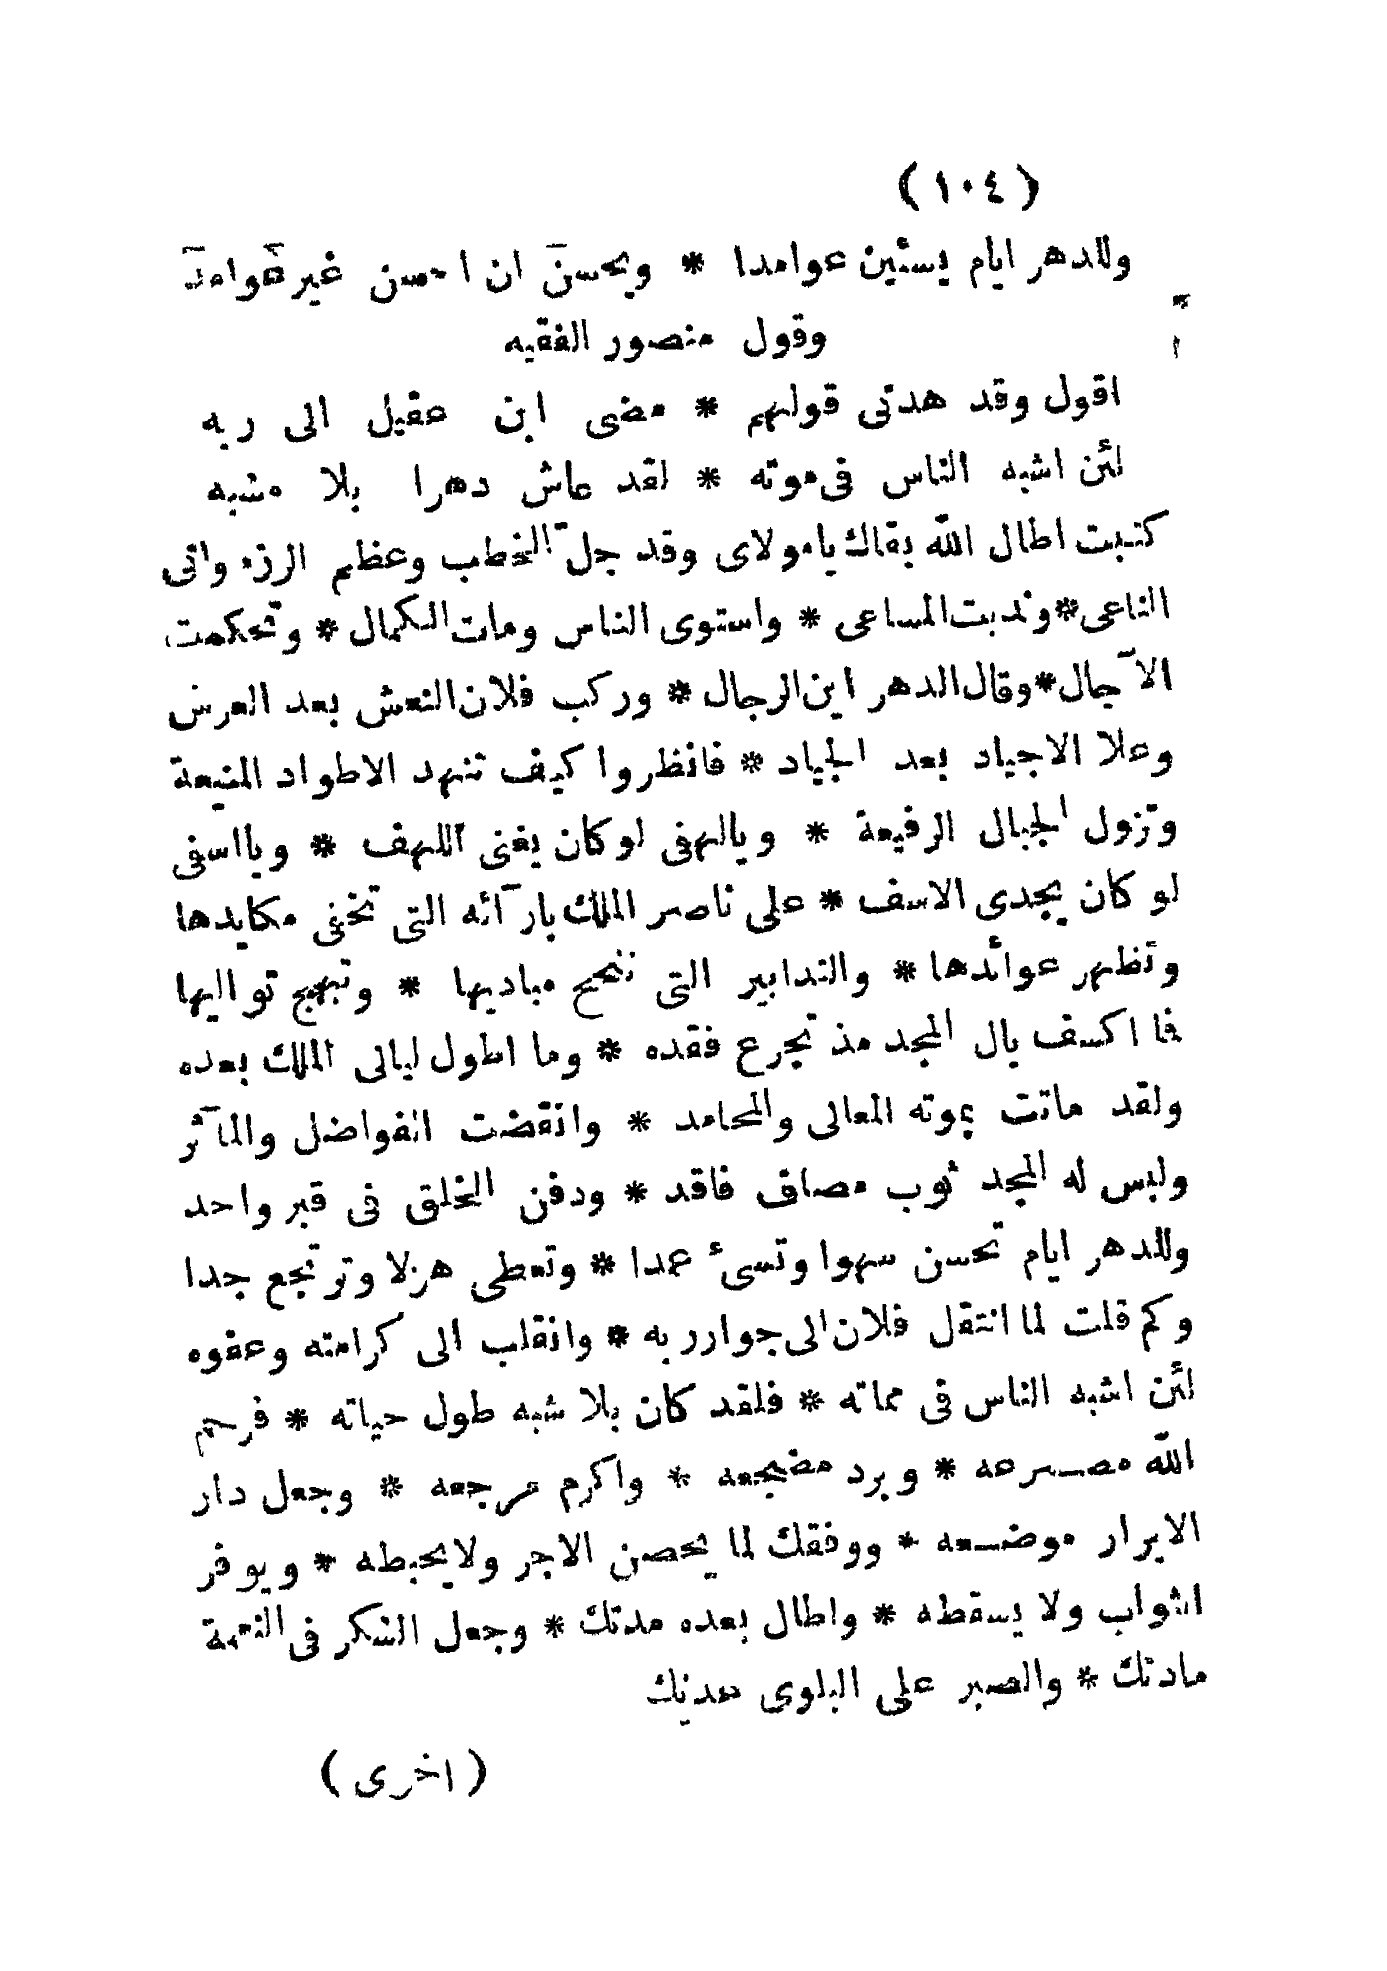 (١٠٤)
وللدهر ايام يسئين عوامدا * ويحسنّ ان احسن غير عوامد
وقول منصور الفقيه
اقول وقد هدنى قولهم * مضى ابن عقيل الى ربه
لئن اشبه الناس فى موته * لقد عاش دهرا بلا مشبه
كتبت اطال الله بقاك يامولاى وقد جلّ الخطب وعظم الرزء واتى
الناعى * وندبت المساعى * واستوى الناس ومات الكمال * وتحكمت
الآجال * وقال الدهر اين الرجال * وركب فلان النعش بعد العرش
وعلا الاجياد بعد الجياد * فانظروا كيف تنهد الاطواد المنيعة
وتزول الجبال الرفيعة * ويالهفى لو كان يغنى اللهف * ويااسفى
لو كان يجدى الاسف * على ناصر الملك بارآئه التى تخفى مكايدها
وتظهر عوائدها * والتدابير التى تنجح مباديها * وتبهج تواليها
فما اكسف بال المجد مذ تجرع فقده * وما اطول ليالى الملك بعده
ولقد ماتت بموته المعالى والمحامد * وانقضت الفواضل والمآثر
ولبس له المجد ثوب مصاف فاقد * ودفن الخلق فى قبر واحد
وللدهر ايام تحسن سهوا وتسىء عمدا * وتعطى هزلا وترتجع جدا
وكم قلت لما انتقل فلان الى جوار ربه * وانقلب الى كرامته وعفوه
لئن اشبه الناس فى مماته * فلقد كان بلا شبه طول حياته * فرحم
الله مصرعه * وبرد مضجعه * واكرم مرجعه * وجعل دار
الابرار موضعه * ووفقك لما يحصن الاجر ولا يحبطه * ويوفر
الثواب ولا يسقطه * واطال بعده مدتك * وجعل الشكر فى النعمة
مادتك * والصبر على البلوى هديك
(اخرى)